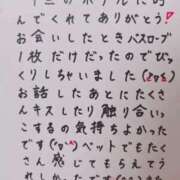 くれてありがとう!
お会いしたときバスローブ
1枚だけだったのでびっ
くりしちゃいました
お話したあとにたく
さんキスしたり触り合いっ
こするの気持ちよかった
です ベットでもたく
さん感じてもらえてう